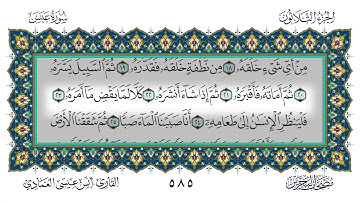 الجزء الثلاثون
سورة عبس
مِنْ أَيِّ شَيْءٍ خَلَقَهُۥ ﴿١٨﴾ مِن نُّطْفَةٍ خَلَقَهُۥ فَقَدَّرَهُۥ ﴿١٩﴾ ثُمَّ ٱلسَّبِيلَ يَسَّرَهُۥ
﴿٢٠﴾ ثُمَّ أَمَاتَهُۥ فَأَقْبَرَهُۥ ﴿٢١﴾ ثُمَّ إِذَا شَآءَ أَنشَرَهُۥ ﴿٢٢﴾ كَلَّا لَمَّا يَقْضِ مَآ أَمَرَهُۥ ﴿٢٣﴾
فَلْيَنظُرِ ٱلْإِنسَٰنُ إِلَىٰ طَعَامِهِۦٓ ﴿٢٤﴾ أَنَّا صَبَبْنَا ٱلْمَآءَ صَبًّا ﴿٢٥﴾ ثُمَّ شَقَقْنَا ٱلْأَرْضَ
القارئ أنس عيسى العمادي
٥٨٥